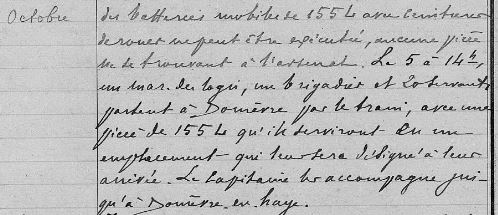 Octobre
des batteries mobiles de 155 L avec ceintures
de roues ne peut être exécutée, aucune pièce
ne se trouvant à l'arsenal. Le 5 à 14h,
un mar. des logis, un brigadier et 20 servants
partent à Domèvre par le train, avec une
pièce de 155 L qu'ils serviront en un
emplacement qui leur sera désigné à leur
arrivée. Le Capitaine les accompagne jus-
qu'à Domèvre-en-haye.